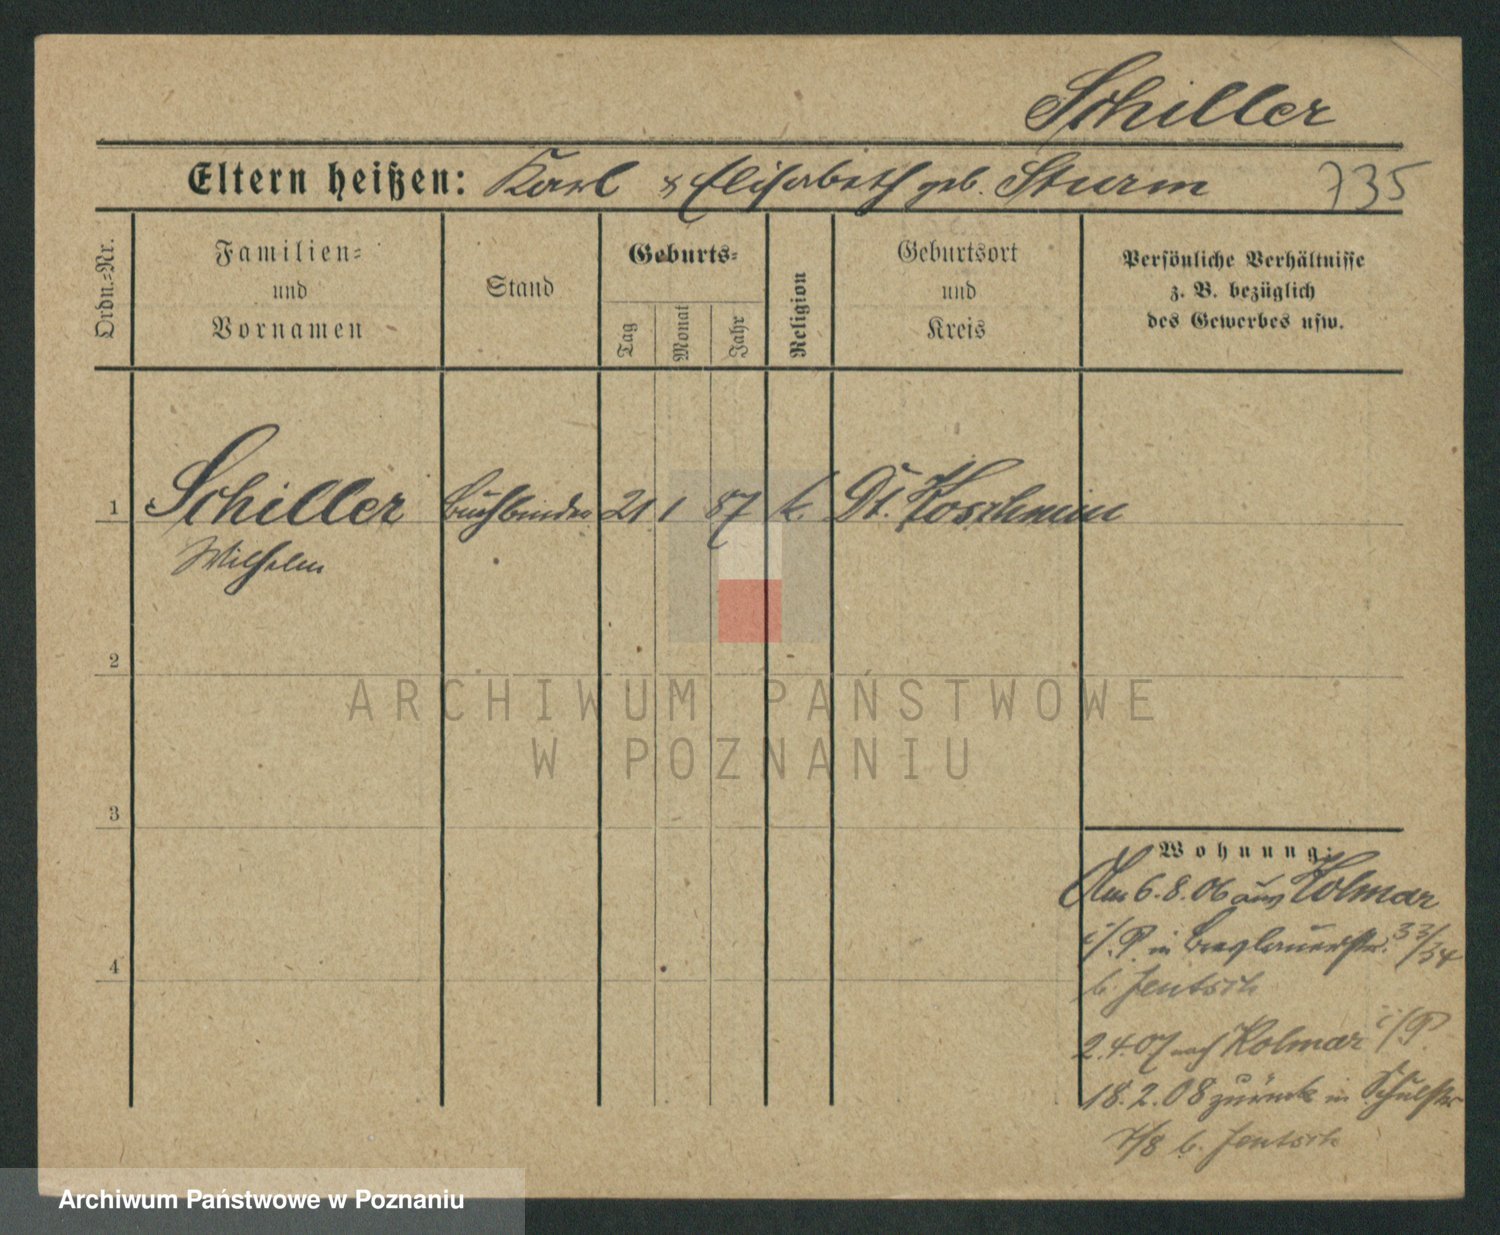 Schiller
Eltern heißen: Karl & Elisabeth geb. Sturm 735
Ordn.-Nr.
Familien-
und
Vornamen
Stand
Geburts-
Tag
Monat
Jahr
Religion
Geburtsort
und
Kreis
Persönliche Verhältnisse
z. B. bezüglich
des Gewerbes usw.
1 Schiller Buchbinder 21 1 87 k. Dt. Koschmin
Wilhelm
2
ARCHIWUM PAŃSTWOWE
W POZNANIU
3
Wohnung:
Am 6.8.06 aus Kolmar
i/P. in Breslauerstr. 33/34
4
b. Jentsch
2.4.07 nach Kolmar i/P.
18.2.08 zurück in Schulstr
7/8 b. Jentsch
Archiwum Państwowe w Poznaniu